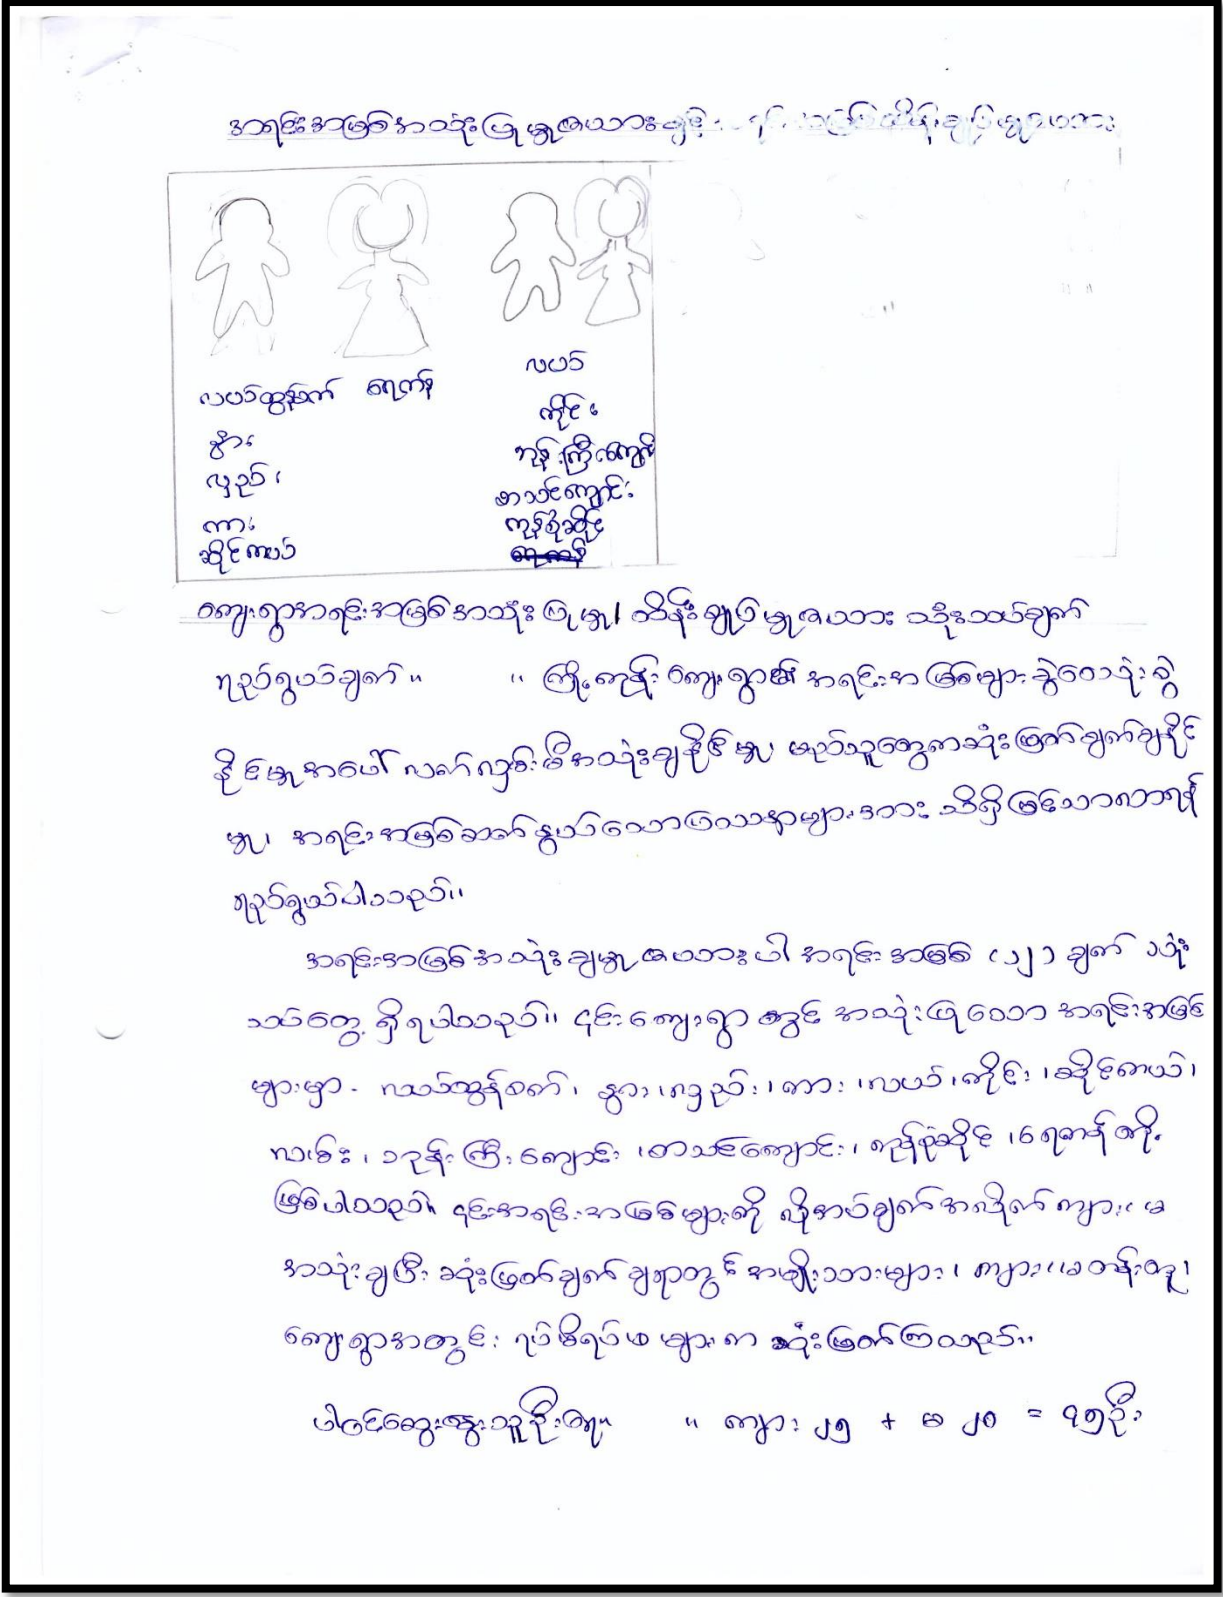 အရင်းအမြစ်အသုံးပြုမှုဇယားနှင့် အရင်းအမြစ်ထိန်းချုပ်မှုဇယား
လယ်ထွန်စက် ရေကန်
လယ်
နွား
ကိုင်း
လှည်း
ဘုန်းကြီးကျောင်း
စာသင်ကျောင်း
ကား
ကုန်စုံဆိုင်
ဆိုင်ကယ်
ကျေးရွာအရင်းအမြစ်အသုံးပြုမှု၊ ထိန်းချုပ်မှုဇယား သုံးသပ်ချက်
ရည်ရွယ်ချက် ။ ။ ကျေးရွာ၏ အရင်းအမြစ်များ ခွဲဝေသုံးစွဲ
နိုင်မှုအပေါ် လက်လှမ်းမီအသုံးချနိုင်မှု၊ မည်သူတွေကဆုံးဖြတ်ချက်ချနိုင်
မှု၊ အရင်းအမြစ်ဆက်နွယ်သောပြဿနာများအား သိရှိဖြစ်သာလာရန်
ရည်ရွယ်ပါသည်။
အရင်းအမြစ်အသုံးချမှုဇယားပါ အရင်းအမြစ် (၁၂) ချက် သုံး
သပ်တွေ့ ရှိရပါသည်။ ၎င်းကျေးရွာတွင် အသုံးပြုသော အရင်းအမြစ်
များမှာ - လယ်ထွန်စက်၊ နွား၊ လှည်း၊ ကား၊ လယ်၊ ကိုင်း၊ ဆိုင်ကယ်၊
လမ်း၊ ဘုန်းကြီးကျောင်း၊ စာသင်ကျောင်း၊ ကုန်စုံဆိုင်၊ ရေကန်တို့
ဖြစ်ပါသည်။ ၎င်းအရင်းအမြစ်များကို လိုအပ်ချက်အလိုက် ကျား၊ မ
အသုံးချပြီး ဆုံးဖြတ်ချက်ချရာတွင် အမျိုးသားများ၊ ကျား၊မတန်းတူ၊
ကျေးရွာအတွင်း ရပ်မိရပ်ဖများက ဆုံးဖြတ်ကြသည်။
ပါဝင်ဆွေးနွေးသူဦးရေ ။ ။ ကျား ၂၅ + မ ၂၀ = ၄၅ဦး